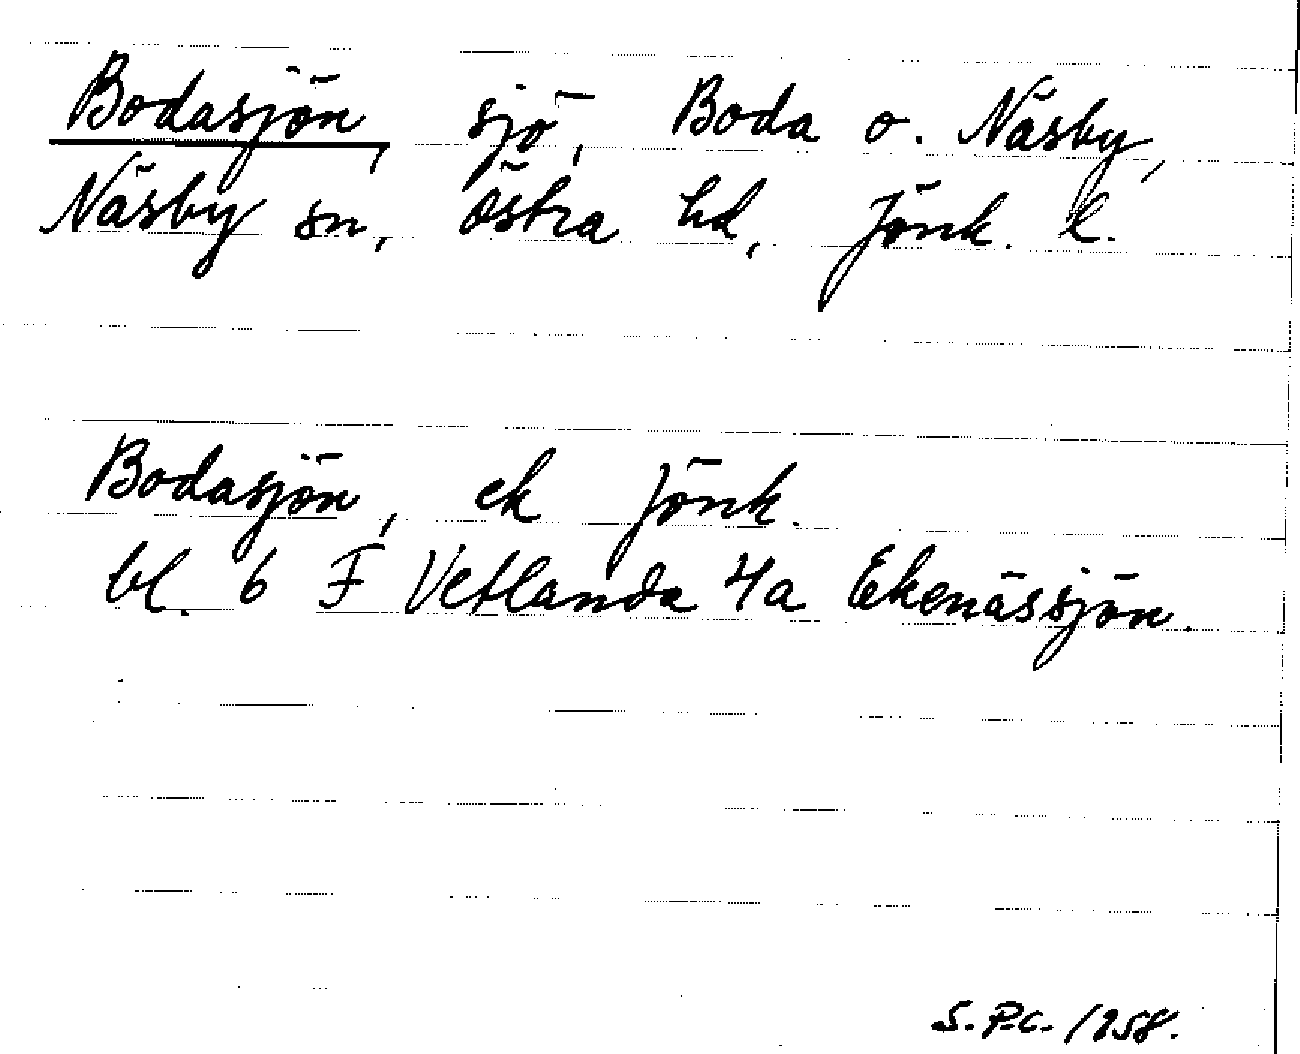 Bodasjön, sjö, Boda o. Näsby,
Näsby sn, Östra hd, Jönk. l.
Bodasjön, ek Jönk.
bl. 6 F Vetlanda 4a Ekenässjön.
S. P-C. 1958.